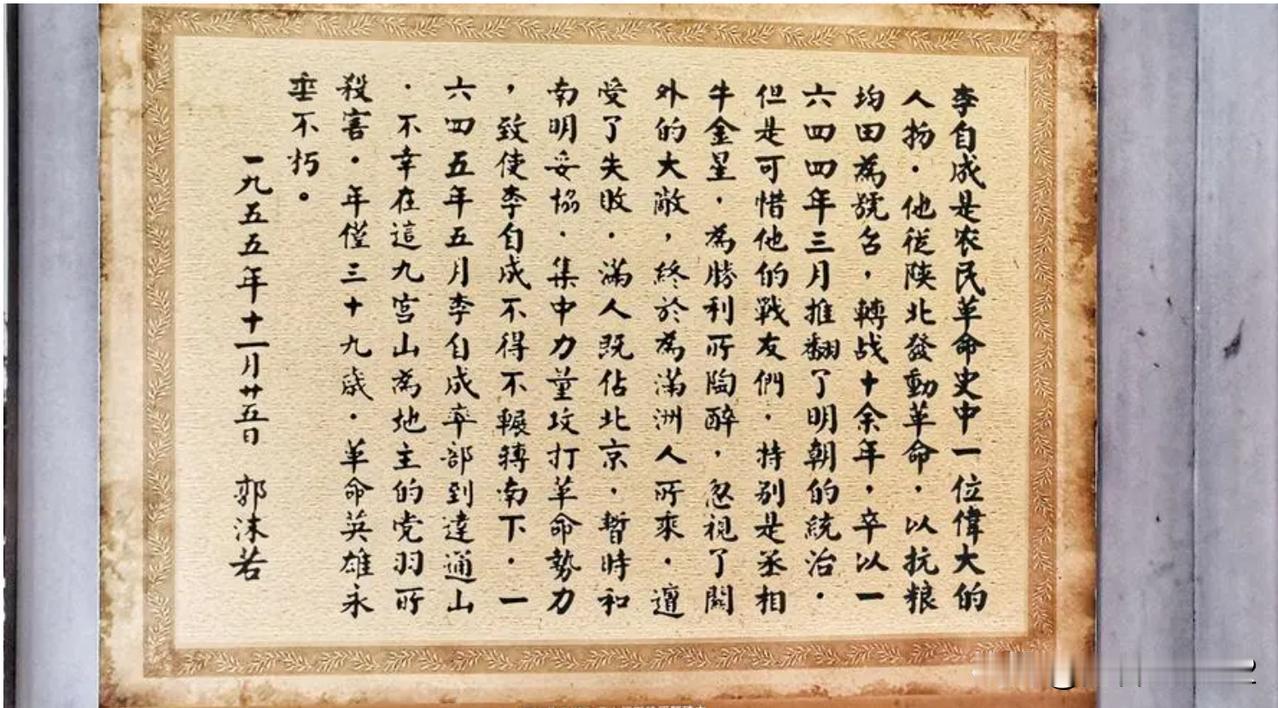 李自成是农民革命史中一位偉大的
人物．他従陕北發動革命，以抗粮
均田為號召，轉战十余年，卒以一
六四四年三月推翻了明朝的統治．
但是可惜他的戰友們．特别是丞相
牛金星，為勝利所陶醉，忽視了關
外的大敵，終於為滿洲人所乘．遭
受了失敗．滿人既佔北京．暫時和
南明妥協．集中力量攻打革命勢力
，致使李自成不得不輾轉南下．一
六四五年五月李自成卒部到達通山
．不幸在這九宫山為地主的党羽所
殺害．年僅三十九歲．革命英雄永
垂不朽。
一九五五年十一月廿五日 郭沫若